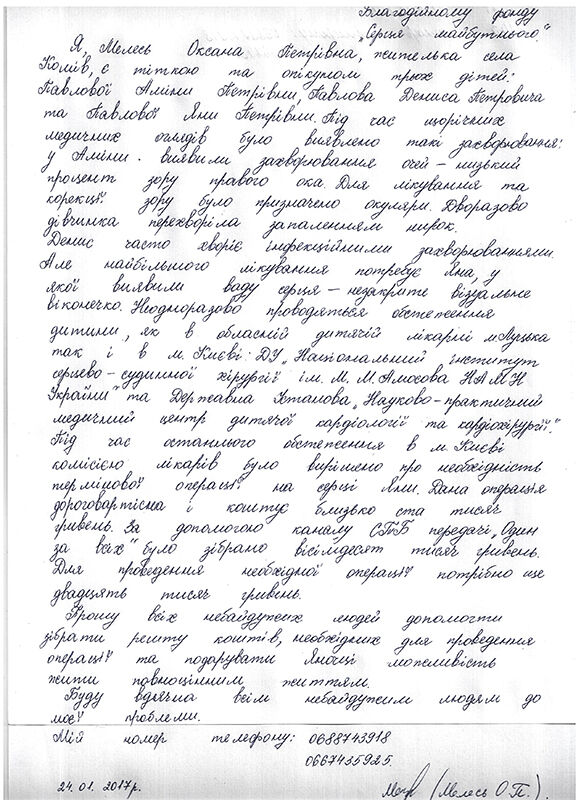 Благодійному фонду
„Серця майбутнього."
Я, Мелесь Оксана Петрівна, жителька села
Колів, є тіткою та опікуном трьох дітей:
Павлової Аміни Петрівни, Павлова Дениса Петровича
та Павлової Яни Петрівни. Під час щорічних
медичних оглядів було виявлено такі захворювання:
у Аміни - виявили захворювання очей – низький
процент зору правого ока. Для лікування та
корекції зору було призначено окуляри. Дворазово
дівчинка перехворіла запаленням нирок.
Денис часто хворіє інфекційними захворюваннями.
Але найбільшого лікування потребує Яна, у
якої виявили ваду серця – незакрите візуальне
віконечко. Неодноразово проводяться обстеження
дитини, як в обласній дитячій лікарні м Луцька
так і в м. Києві: ДУ „Національний інститут
серцево-судинної хірургії ім. М. М. Амосова НАМН
України" та Державна Установа „Науково-практичний
медичний центр дитячої кардіології та кардіохірургії".
Під час останнього обстеження в м. Києві
комісією лікарів було вирішено про необхідність
термінової операції на серці Яни. Дана операція
дороговартісна і коштує близько ста тисяч
гривень. За допомогою каналу СТБ передачі „Один
за всіх" було зібрано вісімдесят тисяч гривень.
Для проведення необхідної операції потрібно ще
двадцять тисяч гривень.
Прошу всіх небайдужих людей допомогти
зібрати решту коштів, необхідних для проведення
операції та подарувати Яночці можливість
жити повноцінним життям.
Буду вдячна всім небайдужим людям до
моєї проблеми.
Мій номер телефону: 0688743918
0667435925.
24.01.2017р. (Мелесь О.П.).